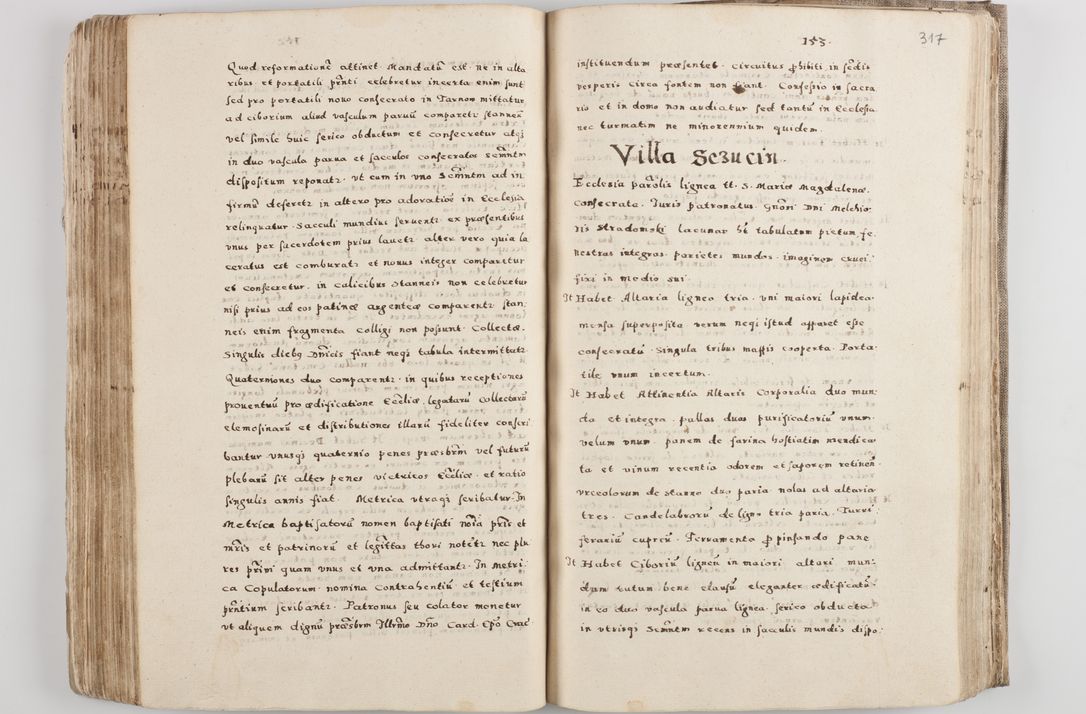 Quod reformationē attinet. Mandatū est. ne in alta
ribus et portatili prñti celebretur incerta enim sunt
sed pro portatili nouo consecrato in Tarnom mittatur
ad ciborium aliud vasculum paruū comparetz stanneū
vel simile huic serico obductum et consecretur atqз
in duo vascula parua et sacculos consecratos Scm̄ntm
dispositum reponatz. vt cum in vno Scm̄ntm ad in
firmū defertz in altero pro adoratiōe in Ecclesia
relinquatur. Sacculi mundius seruentz. ex præsentibus
vnus per sacerdotem prius lauetz. alter vero quia la
ceratus est comburatz et nouus integer comparetur
et consecretur. in calicibus Stanneis non celebretur
nisi prius ad eos patinæ argenteæ comparentz. stan,
neis enim fragmenta colligi non possunt. Collectæ.
Singulis diebɡ Dn̄icis fiant neqɜ tabula intermittatz
Quaterniones duo comparentz. in quibus receptiones
prouentuū pro ædificatione Eccliæ, legatarū collectarū
elemosinarū et distributiones illarū fideliter conscri
bantur. vnusqɜ quaternio penes præsbrm̄ vel futurū
plebanū sit alter penes vietricos Eccliæ. et ratio
singulis annis fiat. Metrica vtraqɜ scribatur. In
Metrica baptisatorū nomen baptisati nōia prīs et
mr̄is et patrinorū et legittas thori notetz nec plu
res prīni quam vnus et vna admittantz. In Metri
ca Copulatorum nomina Contrahentiū et testium
prñtium scribantz. Patronus seu colator monetur
vt aliquem dignū præsbrm̄ Illrm̄o Dn̄o Card. Ep̄o Crac̄
153.
317
instituendum præsentet. circuitus ꝓhibiti in sedis
vesperis circa fontem non fiant. Confessio in sacra
rio et in domo non audiatur sed tantū in Ecclesia
nec turmatim ne minorennium quidem.
Villa Sczucin.
Ecclesia parōlis lignea tt. S. Mariæ Magdalenæ.
consecrata. Iuris patronatus. Gn̄ori Dni Melchio,
ris Stradomski lacunar hẽ tabulatum pictum, fe,
nestras integras. parietes mundos. imaginem cruci,
fixi in medio sui.
It Habet Altaria lignea tria. vni maiori lapidea.
mensa superposita verum neqз istud apparet esse
consecratū. Singula tribus mappis cooperta. Porta
tile vnum incertum.
It Habet Attinentia Altaris Corporalia duo mun,
da et integra. pallas duas purificatoriū vnum.
velum vnum panem de farina hostiatim mendica
ta et vinum recentia odorem et saporem retinen.
vrceolorum de stanno duo paria nolas ad altaria
tres. Candelabrorū de ligno tria paria. Turri,
ferariū cupreū. Ferramenta ꝓ pinsando pane
It Habet Ciboriū ligneū in maiori altari mun,
dum tutum bene clausū eleganter ædificatū.
in eo duo vascula parua lignea, serico obducta
in vtrisqз Scm̄ntm recens in sacculis mundis dispo,